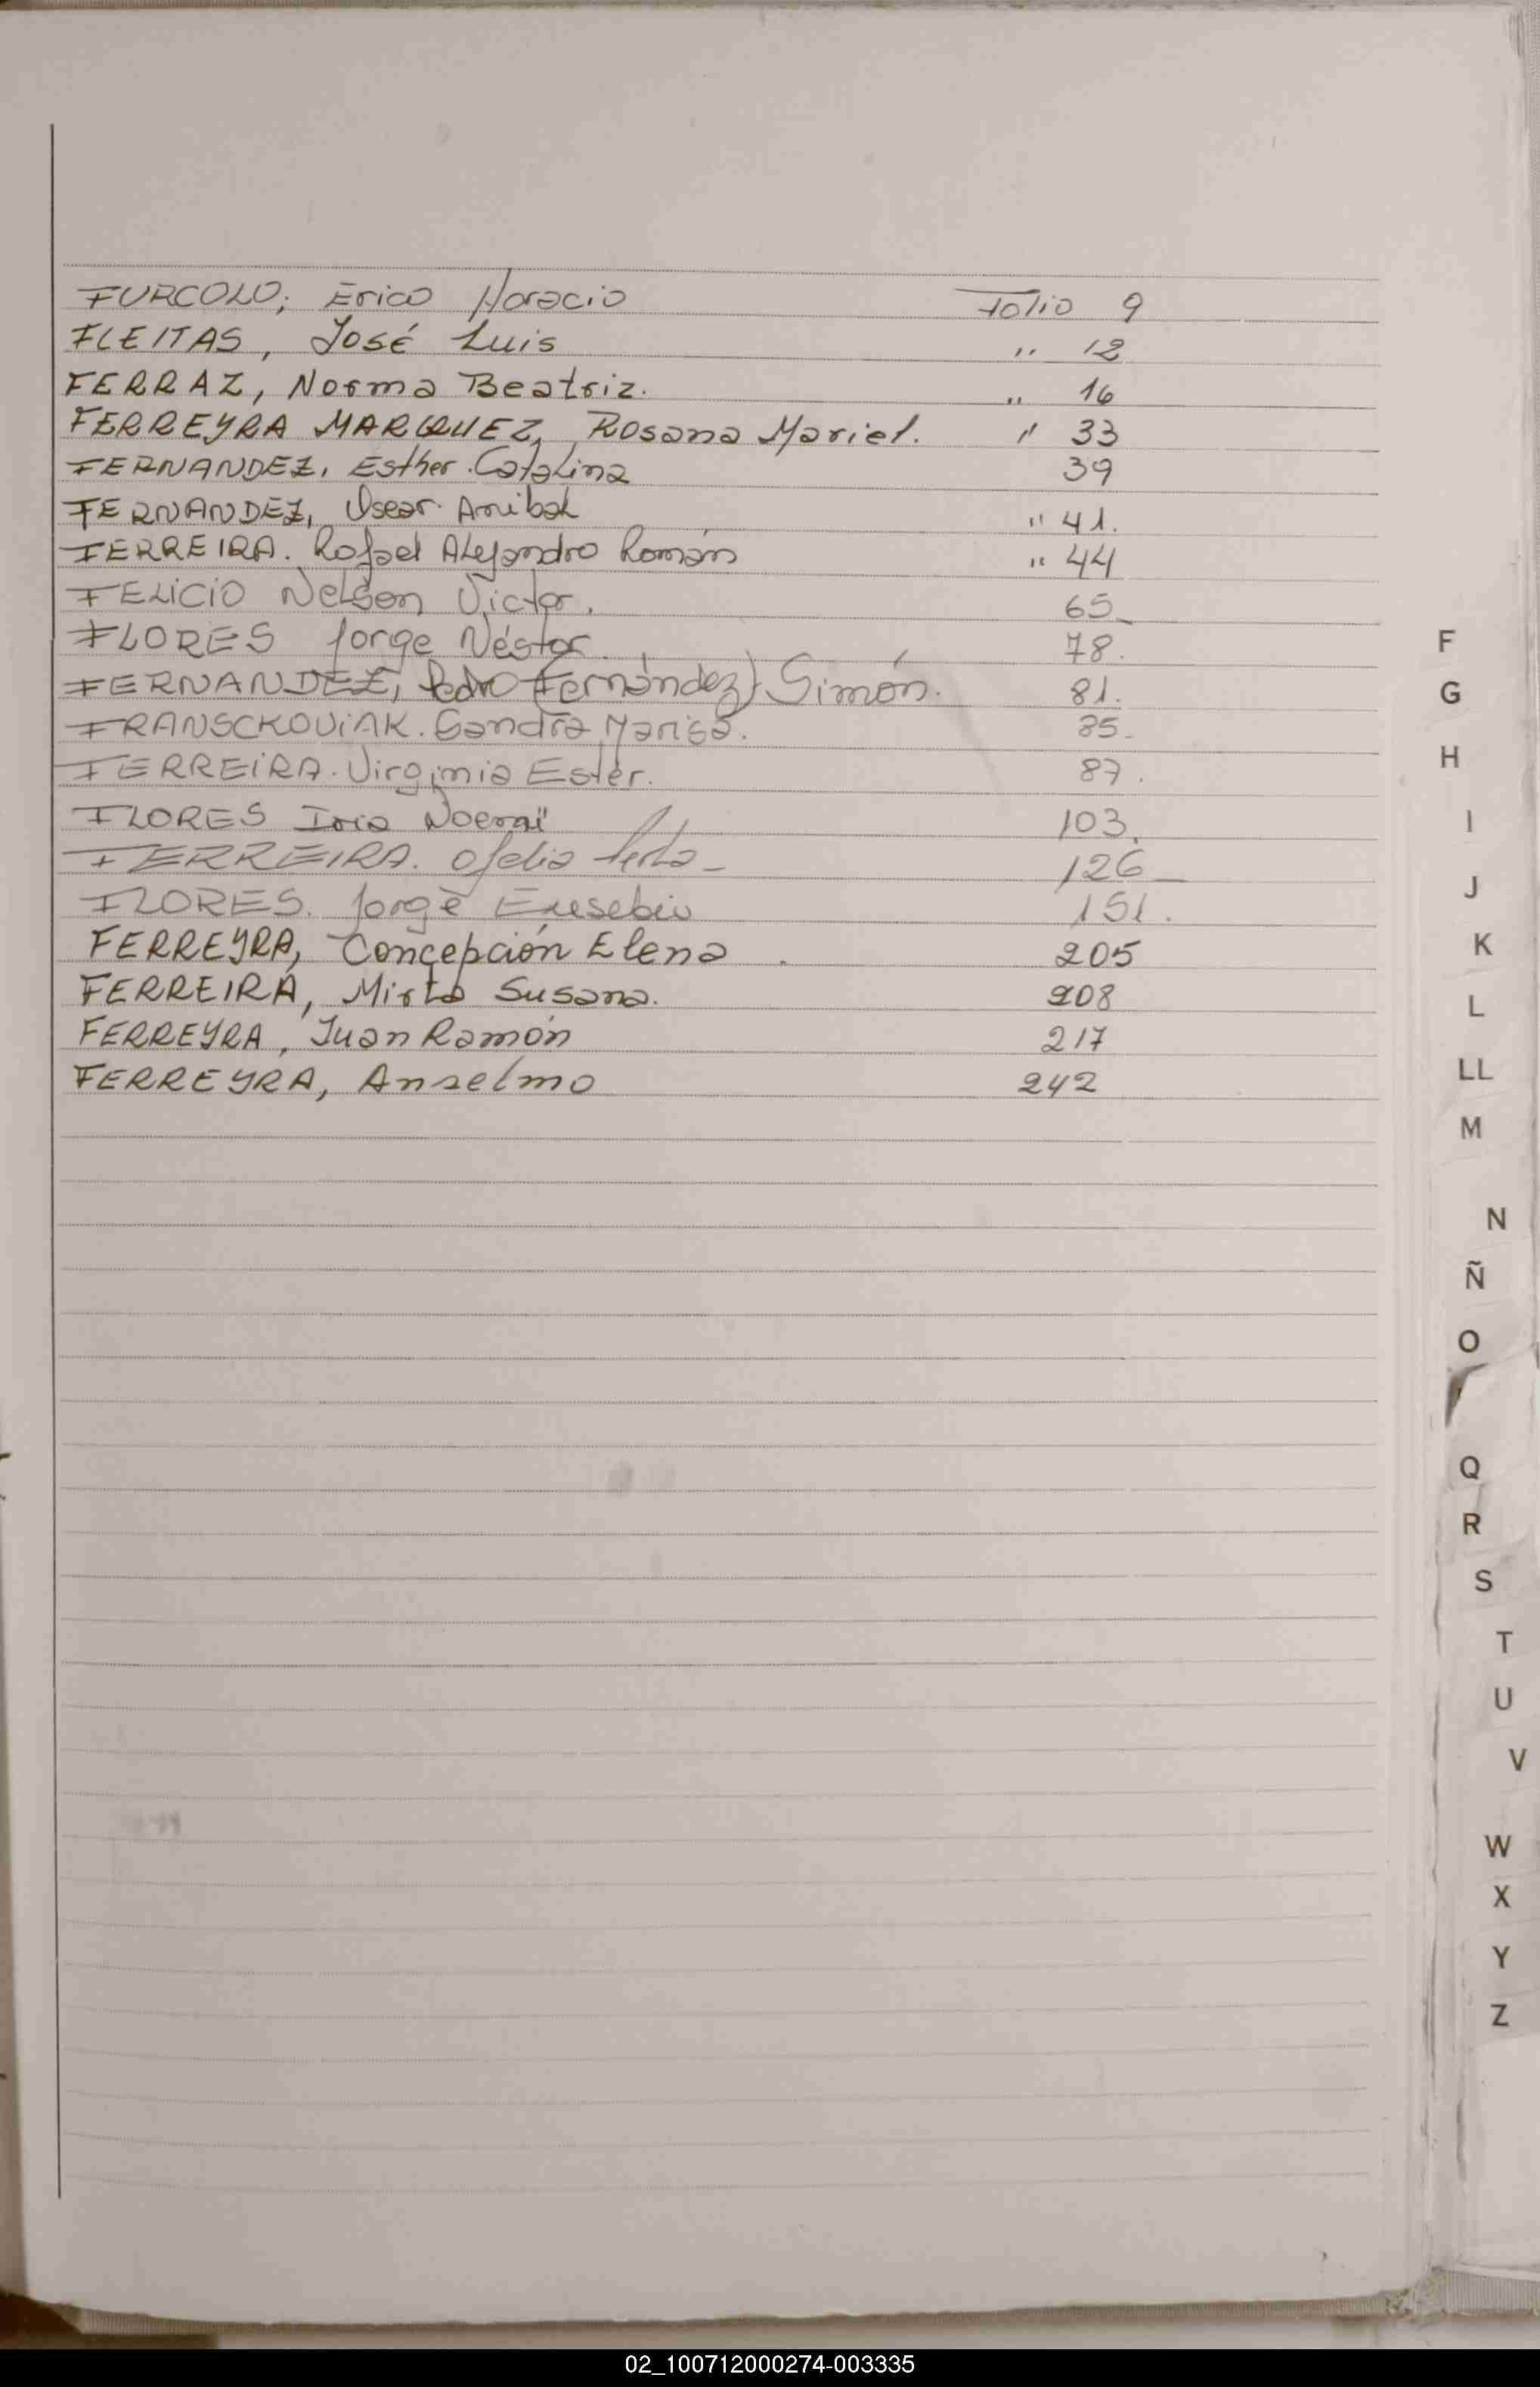 FURCOLO; Erico Horacio Folio 9
FLEITAS, José Luis " 12
FERRAZ, Norma Beatriz. " 16
FERREYRA MARQUEZ, Rosana Mariel. " 33
FERNANDEZ, Esther Catalina 39
FERNANDEZ, Oscar Anibal " 41.
FERREIRA. Rafael Alejandro Román " 44
FELICIO Nelson Victor. 65_
FLORES Jorge Néstor. 78.
FERNANDEZ, Pedro (Fernández) Simón. 81.
FRANSCKOVIAK. Sandra Marisa. 85_
FERREIRA. Virginia Ester. 87.
FLORES Iris Noemí 103.
FERREIRA. Ofelia 126_
FLORES. Jorge Eusebio 151.
FERREYRA, Concepción Elena. 205
FERREIRA, Mirta Susana. 208
FERREYRA, Juan Ramón 217
FERREYRA, Anselmo 242
F
G
H
I
J
K
L
LL
M
N
Ñ
O
Q
R
S
T
U
V
W
X
Y
Z
02_100712000274-003335